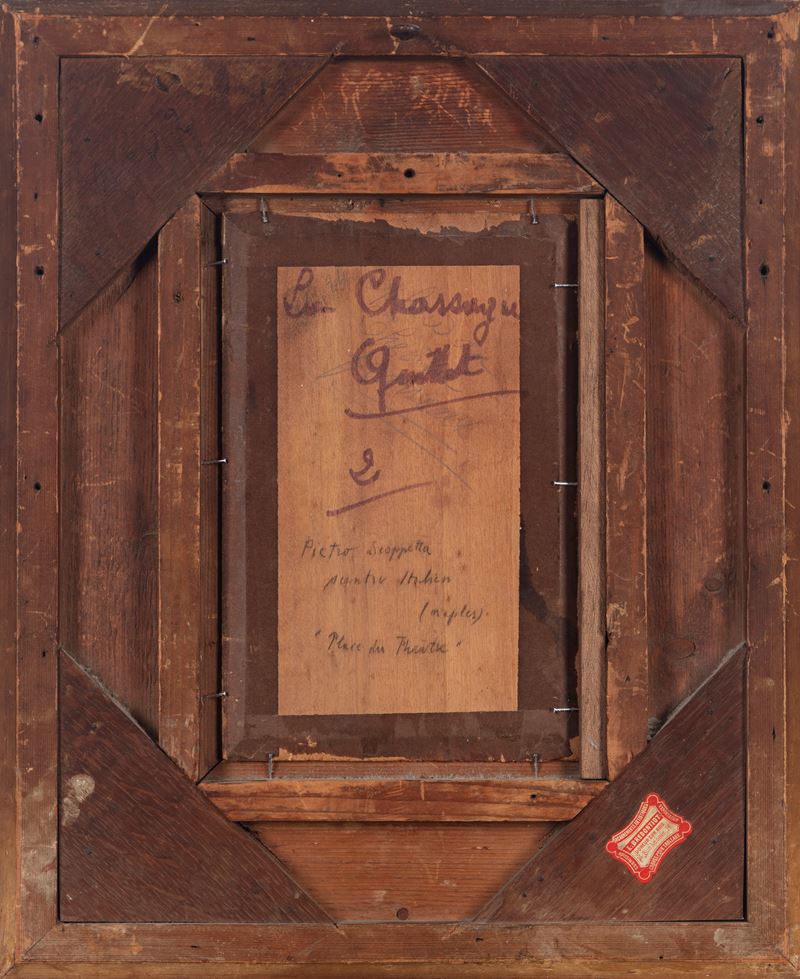 La Chassagne
Quillot
2
Pietro Scoppetta
peintre Italien
(naples).
"Place du Théatre"